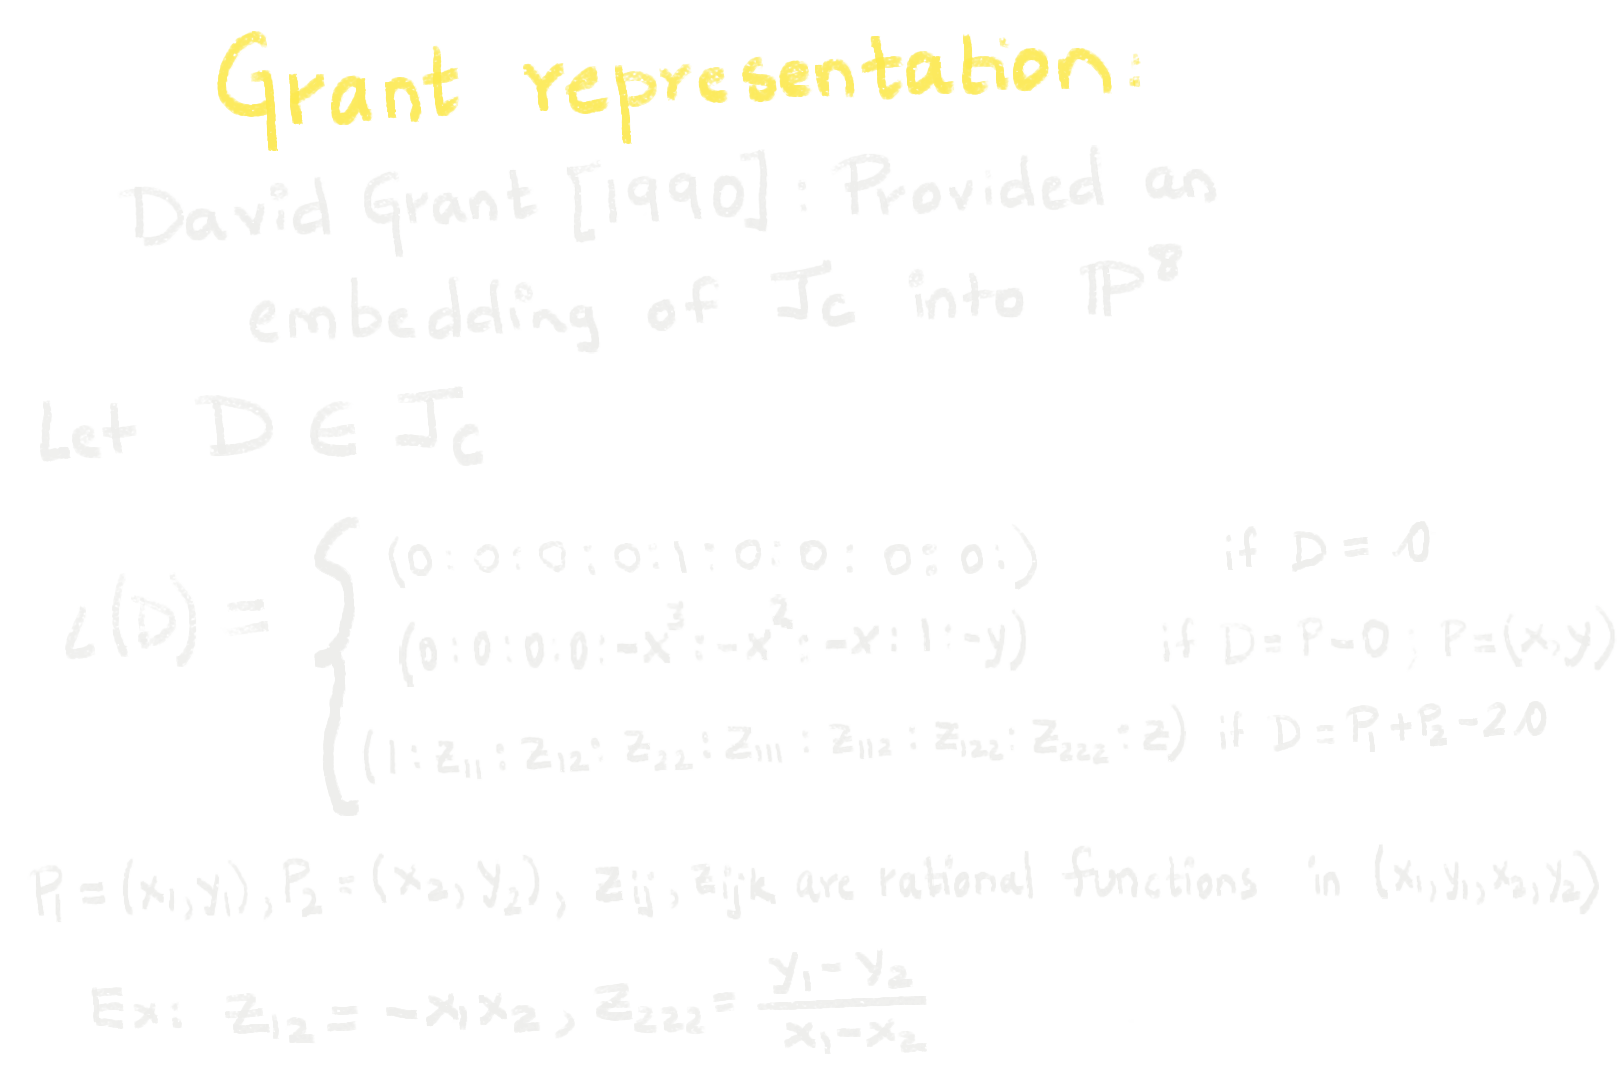 Grant representation:
David Grant [1990]: Provided an
embedding of J_C into ℙ^8
Let D ∈ J_C
L(D) = { (0:0:0:0:1:0:0:0:0:) if D = 0
(0:0:0:0:-x^3:-x^2:-x:1:-y) if D=P-0; P=(x,y)
(1:z_11:z_12:z_22:z_111:z_112:z_122:z_222:z) if D=P_1+P_2-2.0
P_1=(x_1,y_1), P_2=(x_2,y_2), z_ij, z_ijk are rational functions in (x_1,y_1,x_2,y_2)
Ex: z_12 = -x_1x_2, z_222 = (y_1-y_2)/(x_1-x_2)